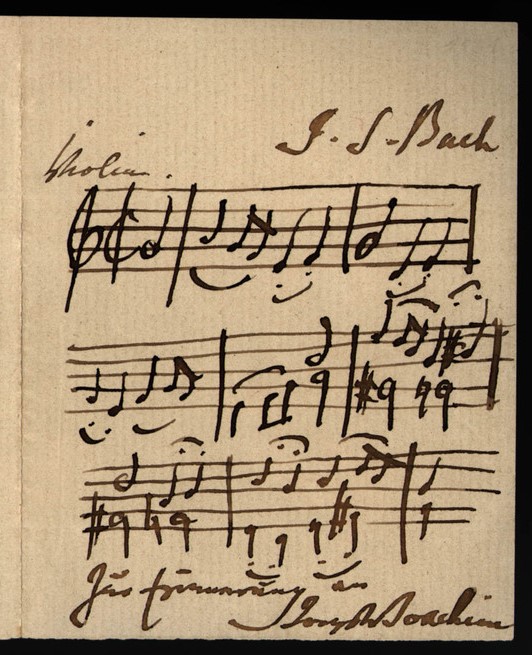 J. S. Bach
Violin.
Zur Erinnerung an
Joseph Joachim